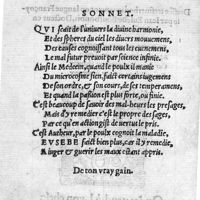 SONNET.
QVI sçait de l'vniuers la diuine harmonie,
Et des spheres du ciel les diuers mouuemens,
Des causes cognoissant tous les euenemens,
Le mal futur preuoit par science infinie.
Ainsi le Medecin, quand le poulx il manie
Du microcosme sien, faict certains iugemens
De son ordre, & son cours, de ses temperamens,
Et quand la passion est plus forte, ou finie.
C'est beaucoup de sçauoir des malheurs les presages,
Mais d'y remedier c'est le propre des sages,
Parce qu'en actiõ gist de vertus le pris.
C'est Autheur, par le poulx cognoit la maladie,
EVSEBE faict bien plus, car il y remedie,
A iuger & guerir les maux estant appris.
De ton vray gain.